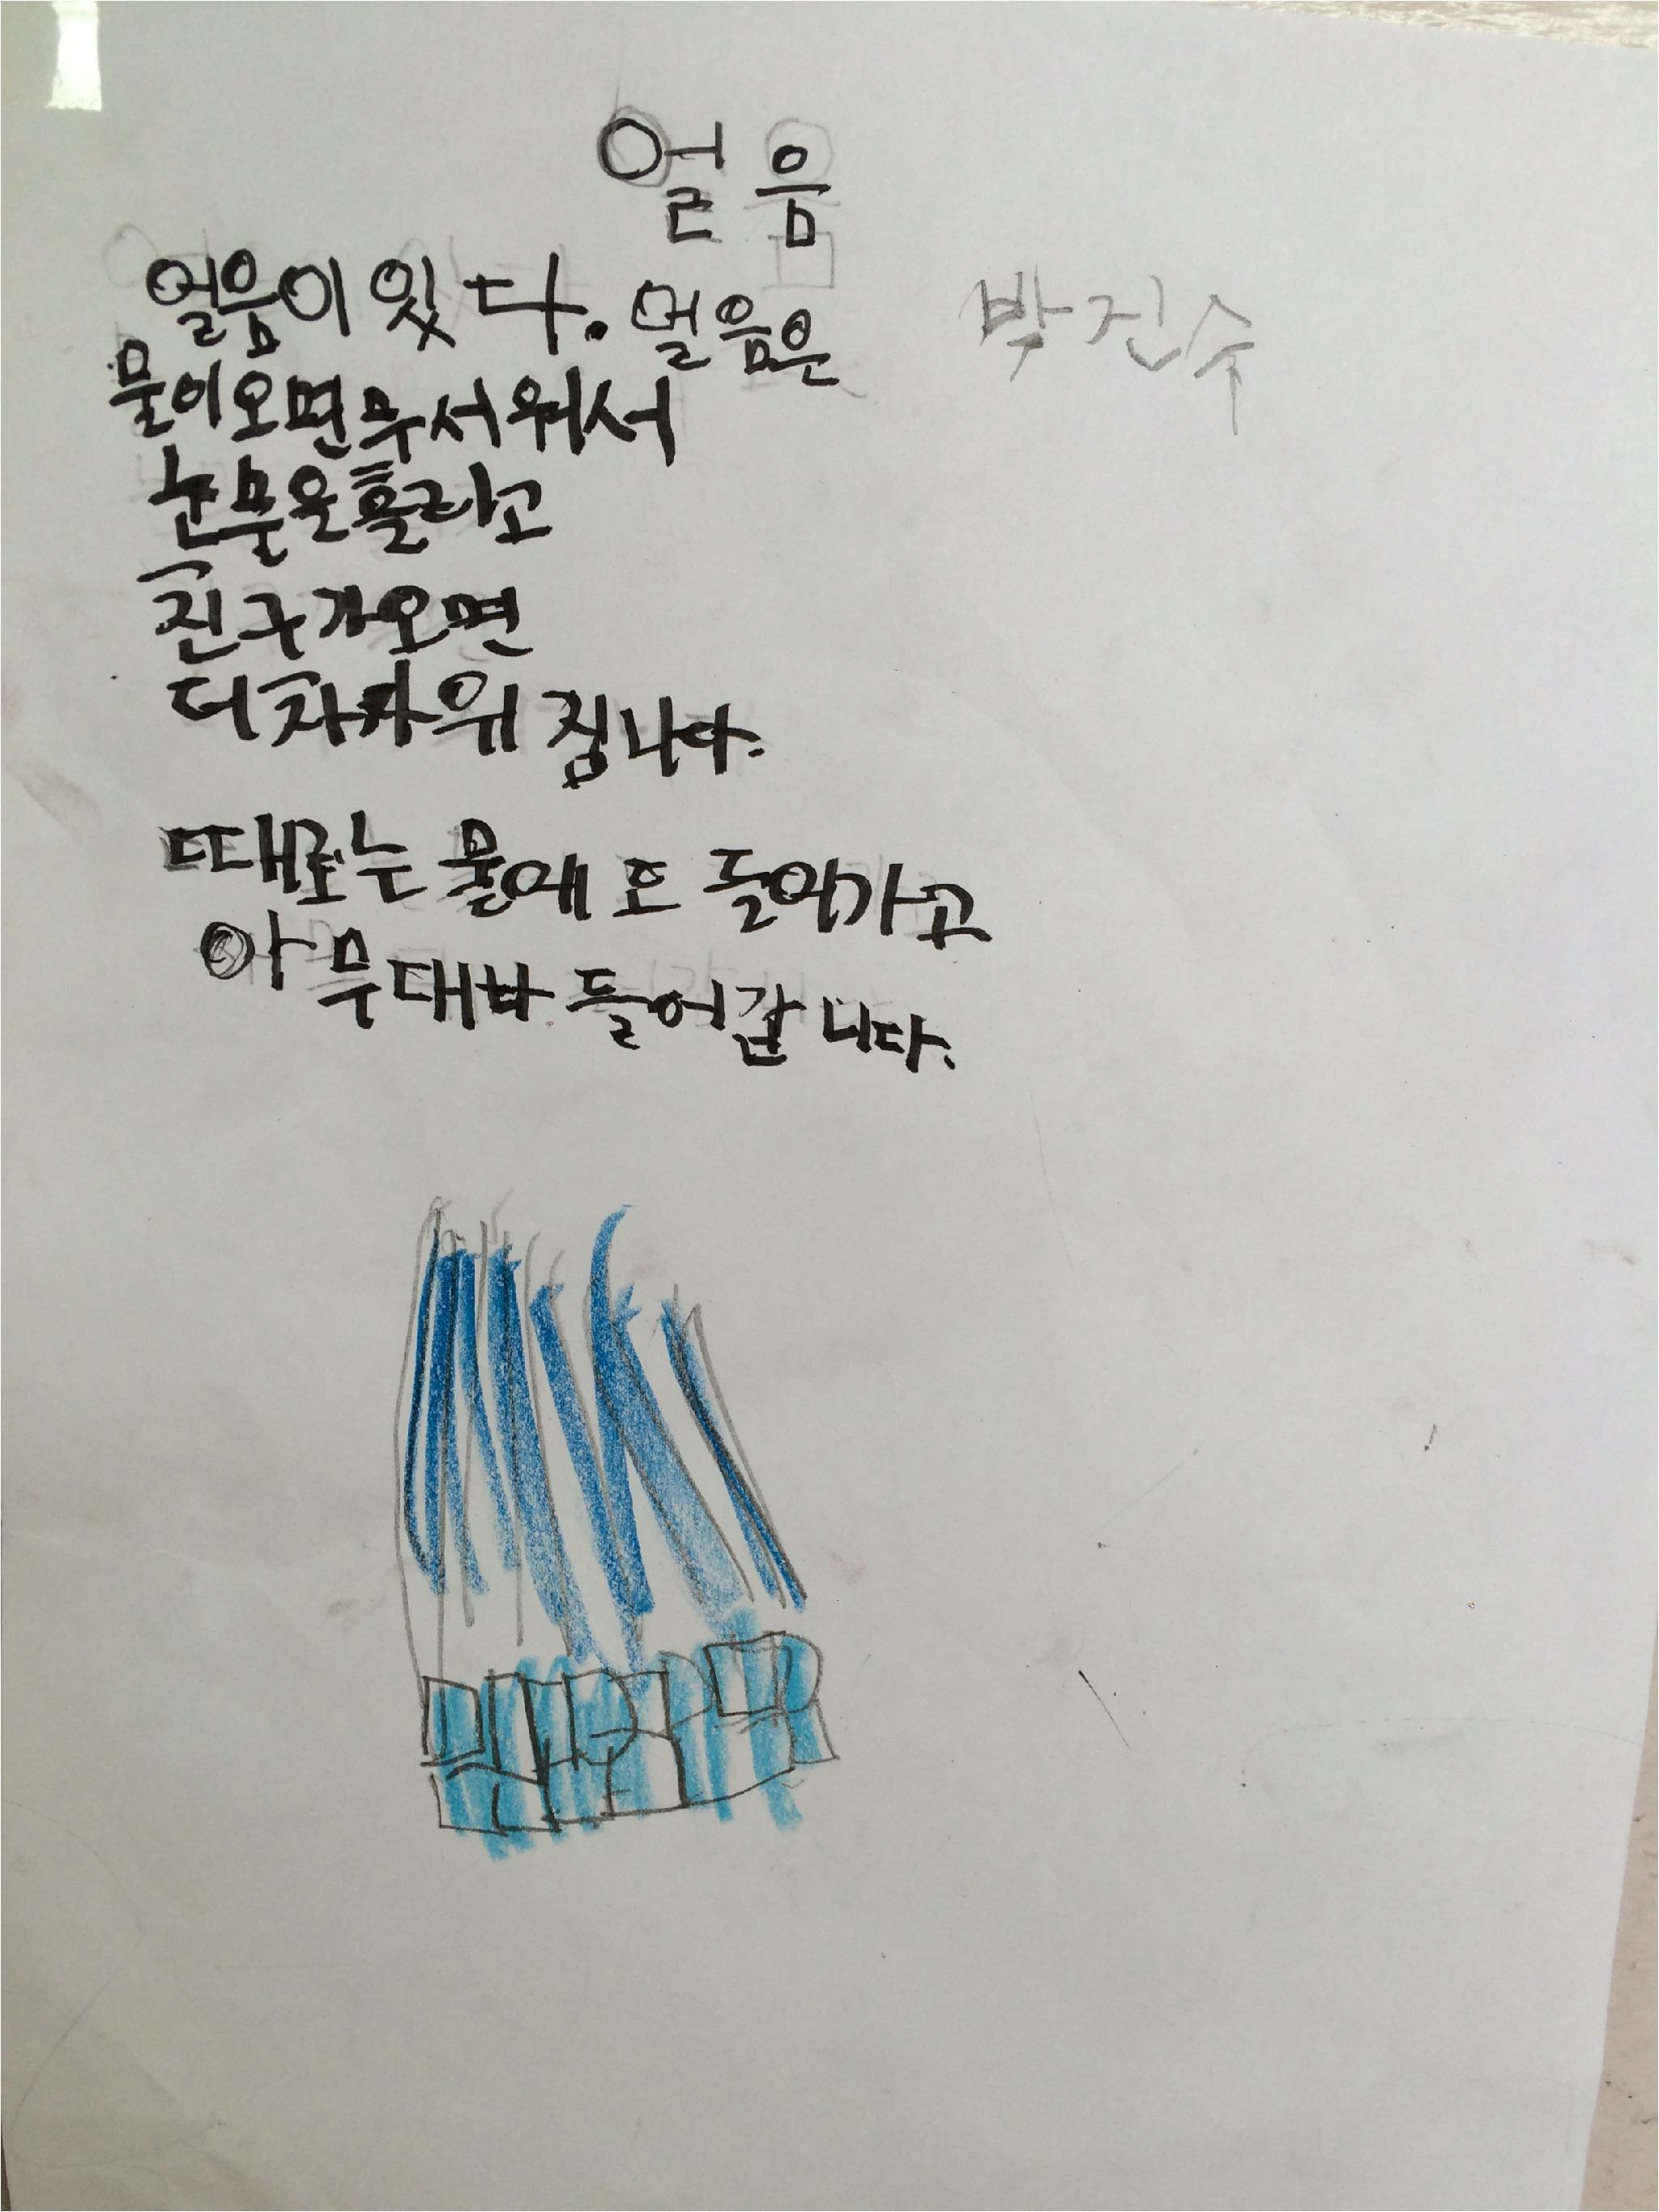 얼음
박진수
얼음이 있다. 얼음은
물이오면무서워서
눈물을흘리고
친구가오면
더차가워 집니다.
때로는 물에 도 들어가고
아무대나 들어갑니다.